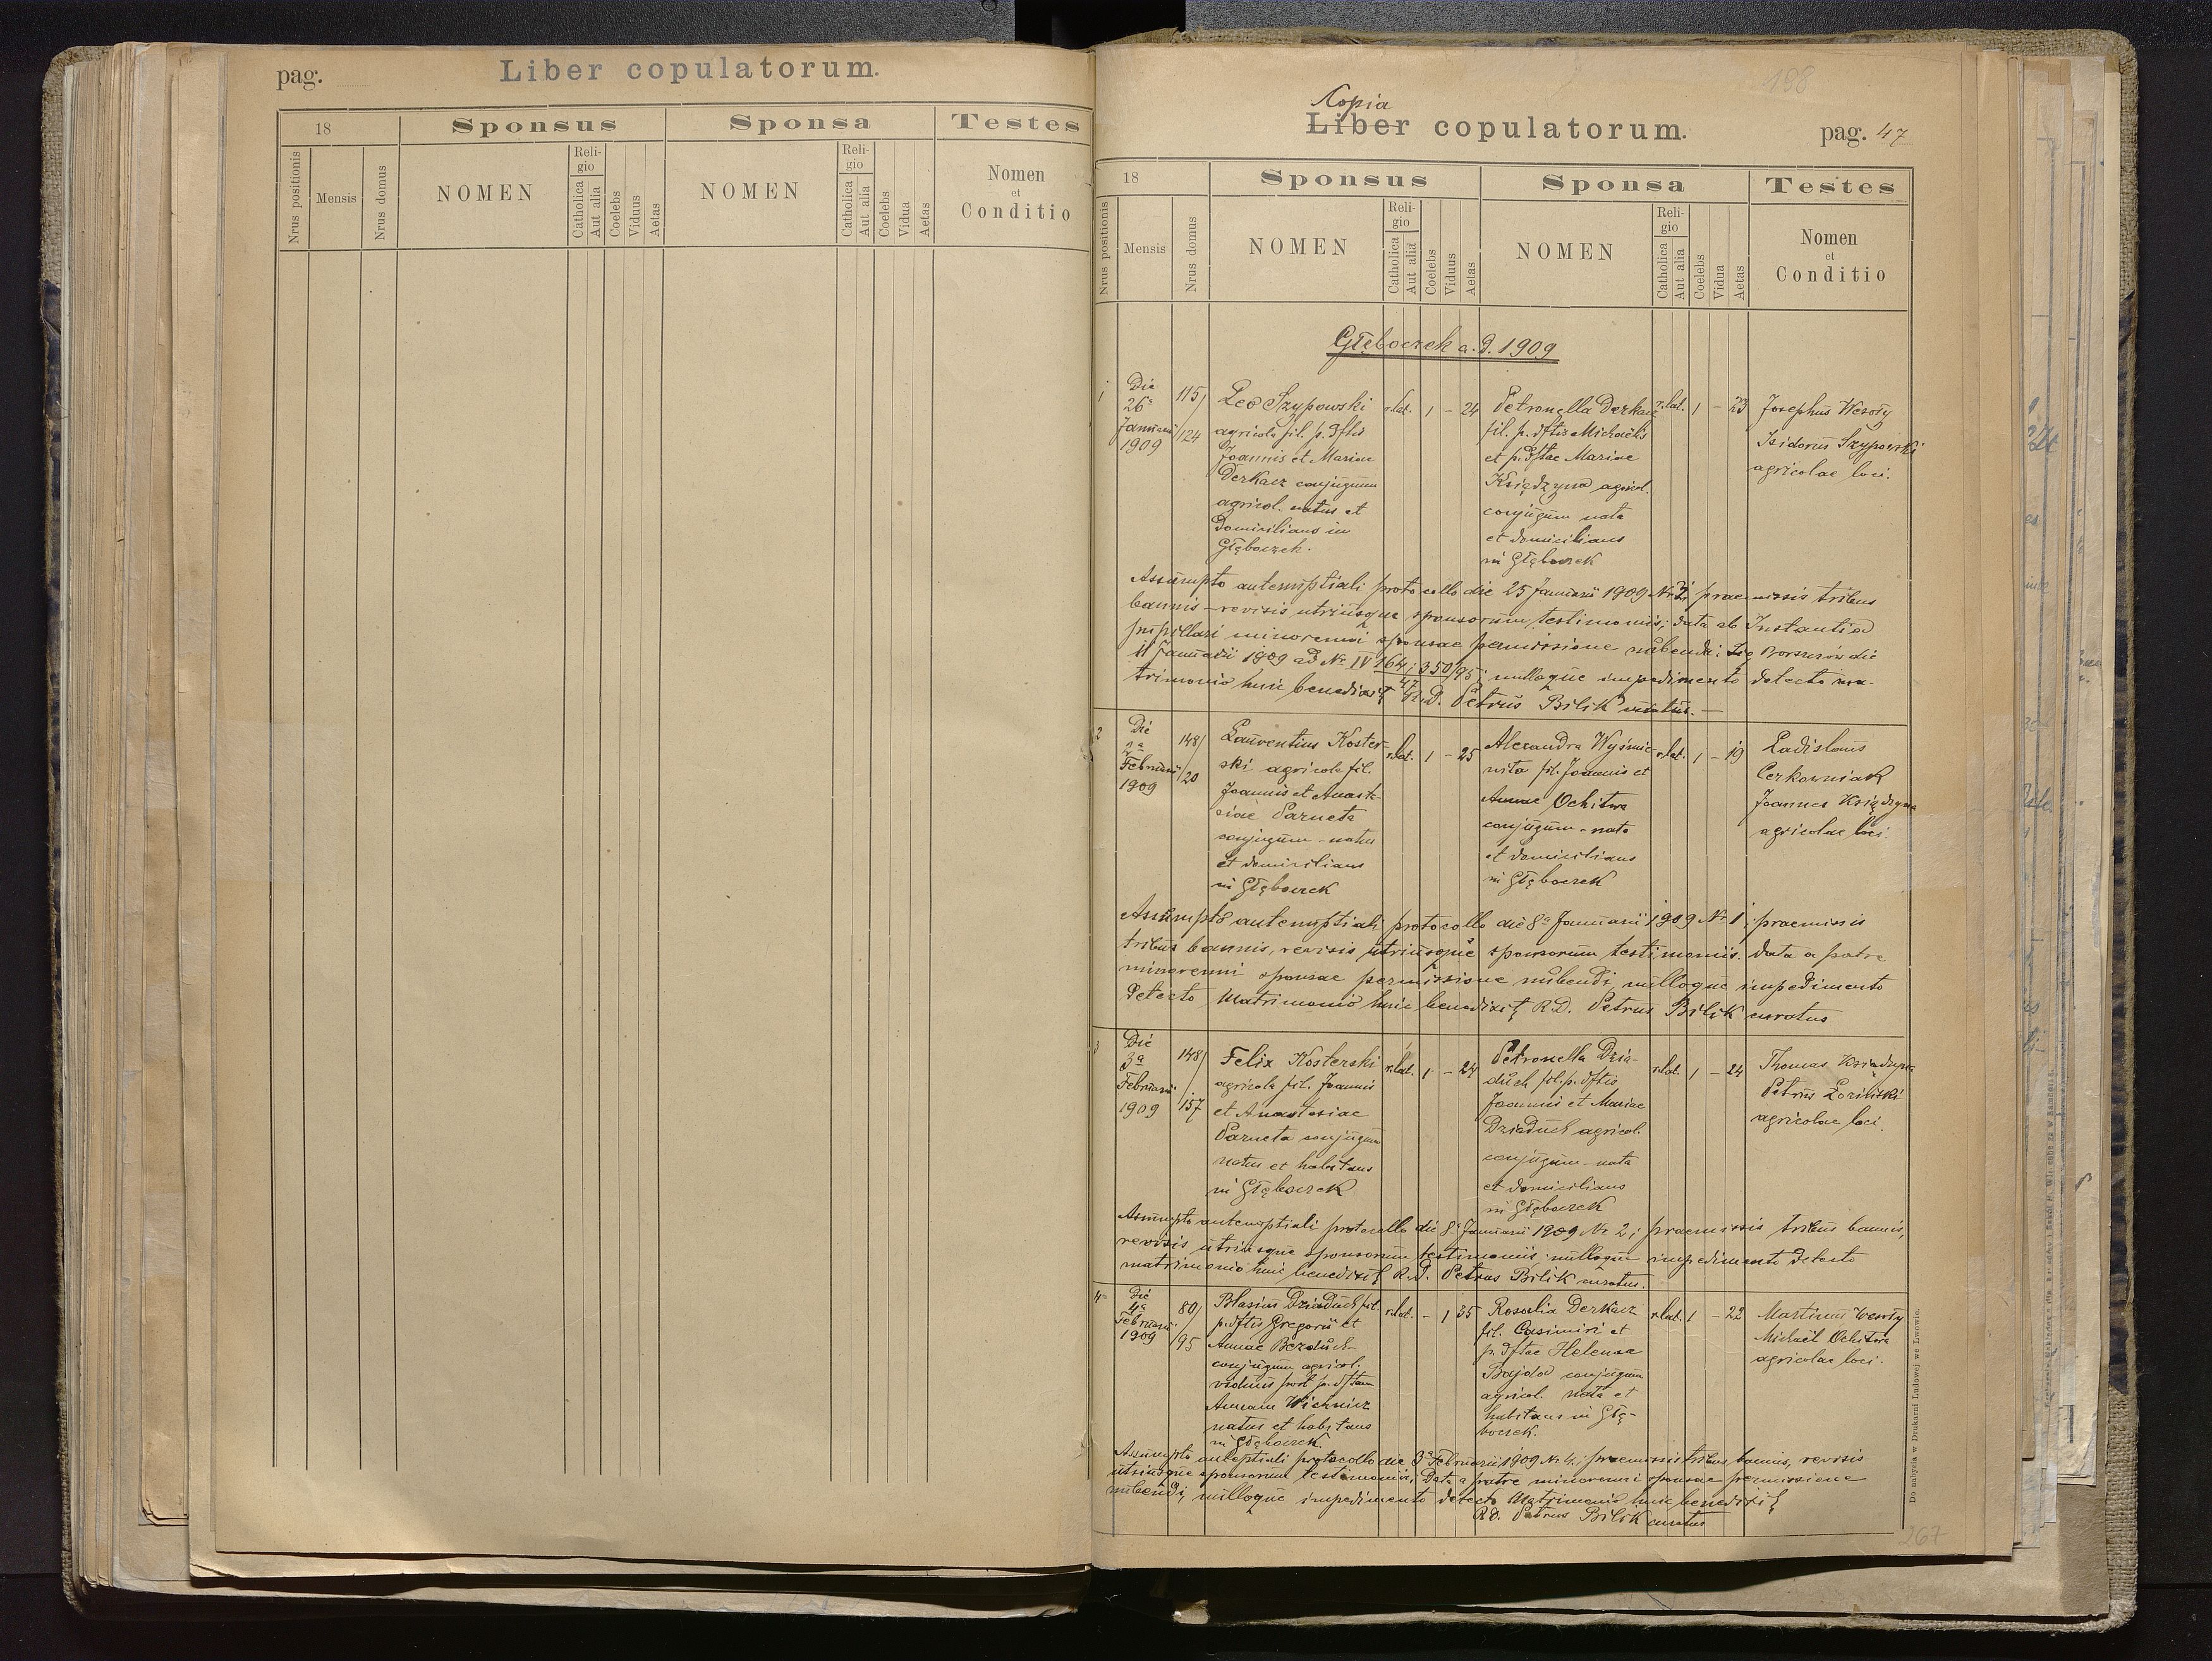 pag.
Liber copulatorum.
18
Sponsus
Sponsa
Testes
Nrus positionis
Mensis
Nrus domus
NOMEN
Religio
Catholica
Aut alia
Coelebs
Viduus
Aetas
NOMEN
Religio
Catholica
Aut alia
Coelebs
Vidua
Aetas
Nomen
et
Conditio
198
Kopia
Liber copulatorum.
pag. 47
18
Sponsus
Sponsa
Testes
Nrus positionis
Mensis
Nrus domus
NOMEN
Religio
Catholica
Aut alia
Coelebs
Viduus
Aetas
NOMEN
Religio
Catholica
Aut alia
Coelebs
Vidua
Aetas
Nomen
et
Conditio
Głęboczek a. d. 1909
1
Die
26a
Januarii
1909
115/
/124
Leo Szypowski
agricola fil. p. dftis
Joannis et Mariae
Derkacz conjugum
agricol. natus et
domicilians in
Głęboczek.
r. lat. 1 – 24
Petronella Derkacz
fil. p. dftis Michaelis
et p. dftae Mariae
Księdzyna agricol.
conjugum nata
et domicilians
in Głęboczek
r. lat. 1 – 23
Josephus Wesoły
Isidorus Szypowski
agricolae loci.
Assumpto antenuptiali protocollo die 25 Januarii 1909 Nr 3; praemissis tribus
bannis – revisis utriusque sponsorum testimoniis; data ab Instantia
pupillari minorenni sponsae permissione nubendi: Borszczów die
11 Januarii 1909 ad Nr IV 164; 350/95; nulloque impedimento detecto ma-
47
trimonio huic benedixit R. D. Petrus Bilik curatus. –
2
Die
2a
Februarii
1909
148/
/20
Laurentius Koster-
ski agricola fil.
Joannis et Anasta-
siae Parneta
conjugum – natus
et domicilians
in Głęboczek
r. lat. 1 – 25
Alexandra Wyśnie-
wita fil. Joannis et
Annae Ochitwa
conjugum – nata
et domicilians
in Głęboczek
r. lat. 1 – 19
Ladislaus
Cerkowniak
Joannes Księdzyna
agricolae loci.
Assumpto antenuptiali protocollo die 8a Januarii 1909 Nr 1; praemissis
tribus bannis, revisis utriusque sponsorum testimoniis. data a patre
minorenni sponsae permissione nubendi, nulloque impedimento
detecto Matrimonio huic benedixit R. D. Petrus Bilik curatus
3
Die
3a
Februarii
1909
148/
/157
Felix Kosterski
agricola fil. Joannis
et Anastasiae
Parneta conjugum
natus et habitans
in Głęboczek
r. lat. 1 – 24
Petronella Dzia-
duch fil. p. dftis
Joannis et Mariae
Dziaduch agricol.
conjugum – nata
et domicilians
in Głęboczek
r. lat. 1 – 24
Thomas Księdzyna
Petrus Łoziński
agricolae loci.
Assumpto antenuptiali protocollo die 8a Januarii 1909 Nr 2; praemissis tribus bannis,
revisis utriusque sponsorum testimoniis nulloque impedimento detecto
matrimonio huic benedixit R. D. Petrus Bilik curatus.
4
Die
4a
Februarii
1909
80/
/95
Blasius Dziaduch fil.
p. dftis Gregorii et
Annae Bezduch
conjugum agricol.
viduus post p. dftam
Annam
natus et habitans
in Głęboczek.
r. lat. – 1 35
Rosalia Derkacz
fil. Casimiri et
p. dftae Helenae
Bajda conjugum
agricol. nata et
habitans in Głę-
boczek.
r. lat. 1 – 22
Martinus Wesoły
Michael Ochitwa
agricolae loci.
Assumpto antenuptiali protocollo die 3a Februarii 1909 Nr 4; praemissis tribus bannis, revisis
utriusque sponsorum testimoniis, data a patre minorenni sponsae permissione
nubendi, nulloque impedimento detecto Matrimonio huic benedixit
R. D. Petrus Bilik curatus
Do nabycia w Drukarni Ludowej we Lwowie.
267